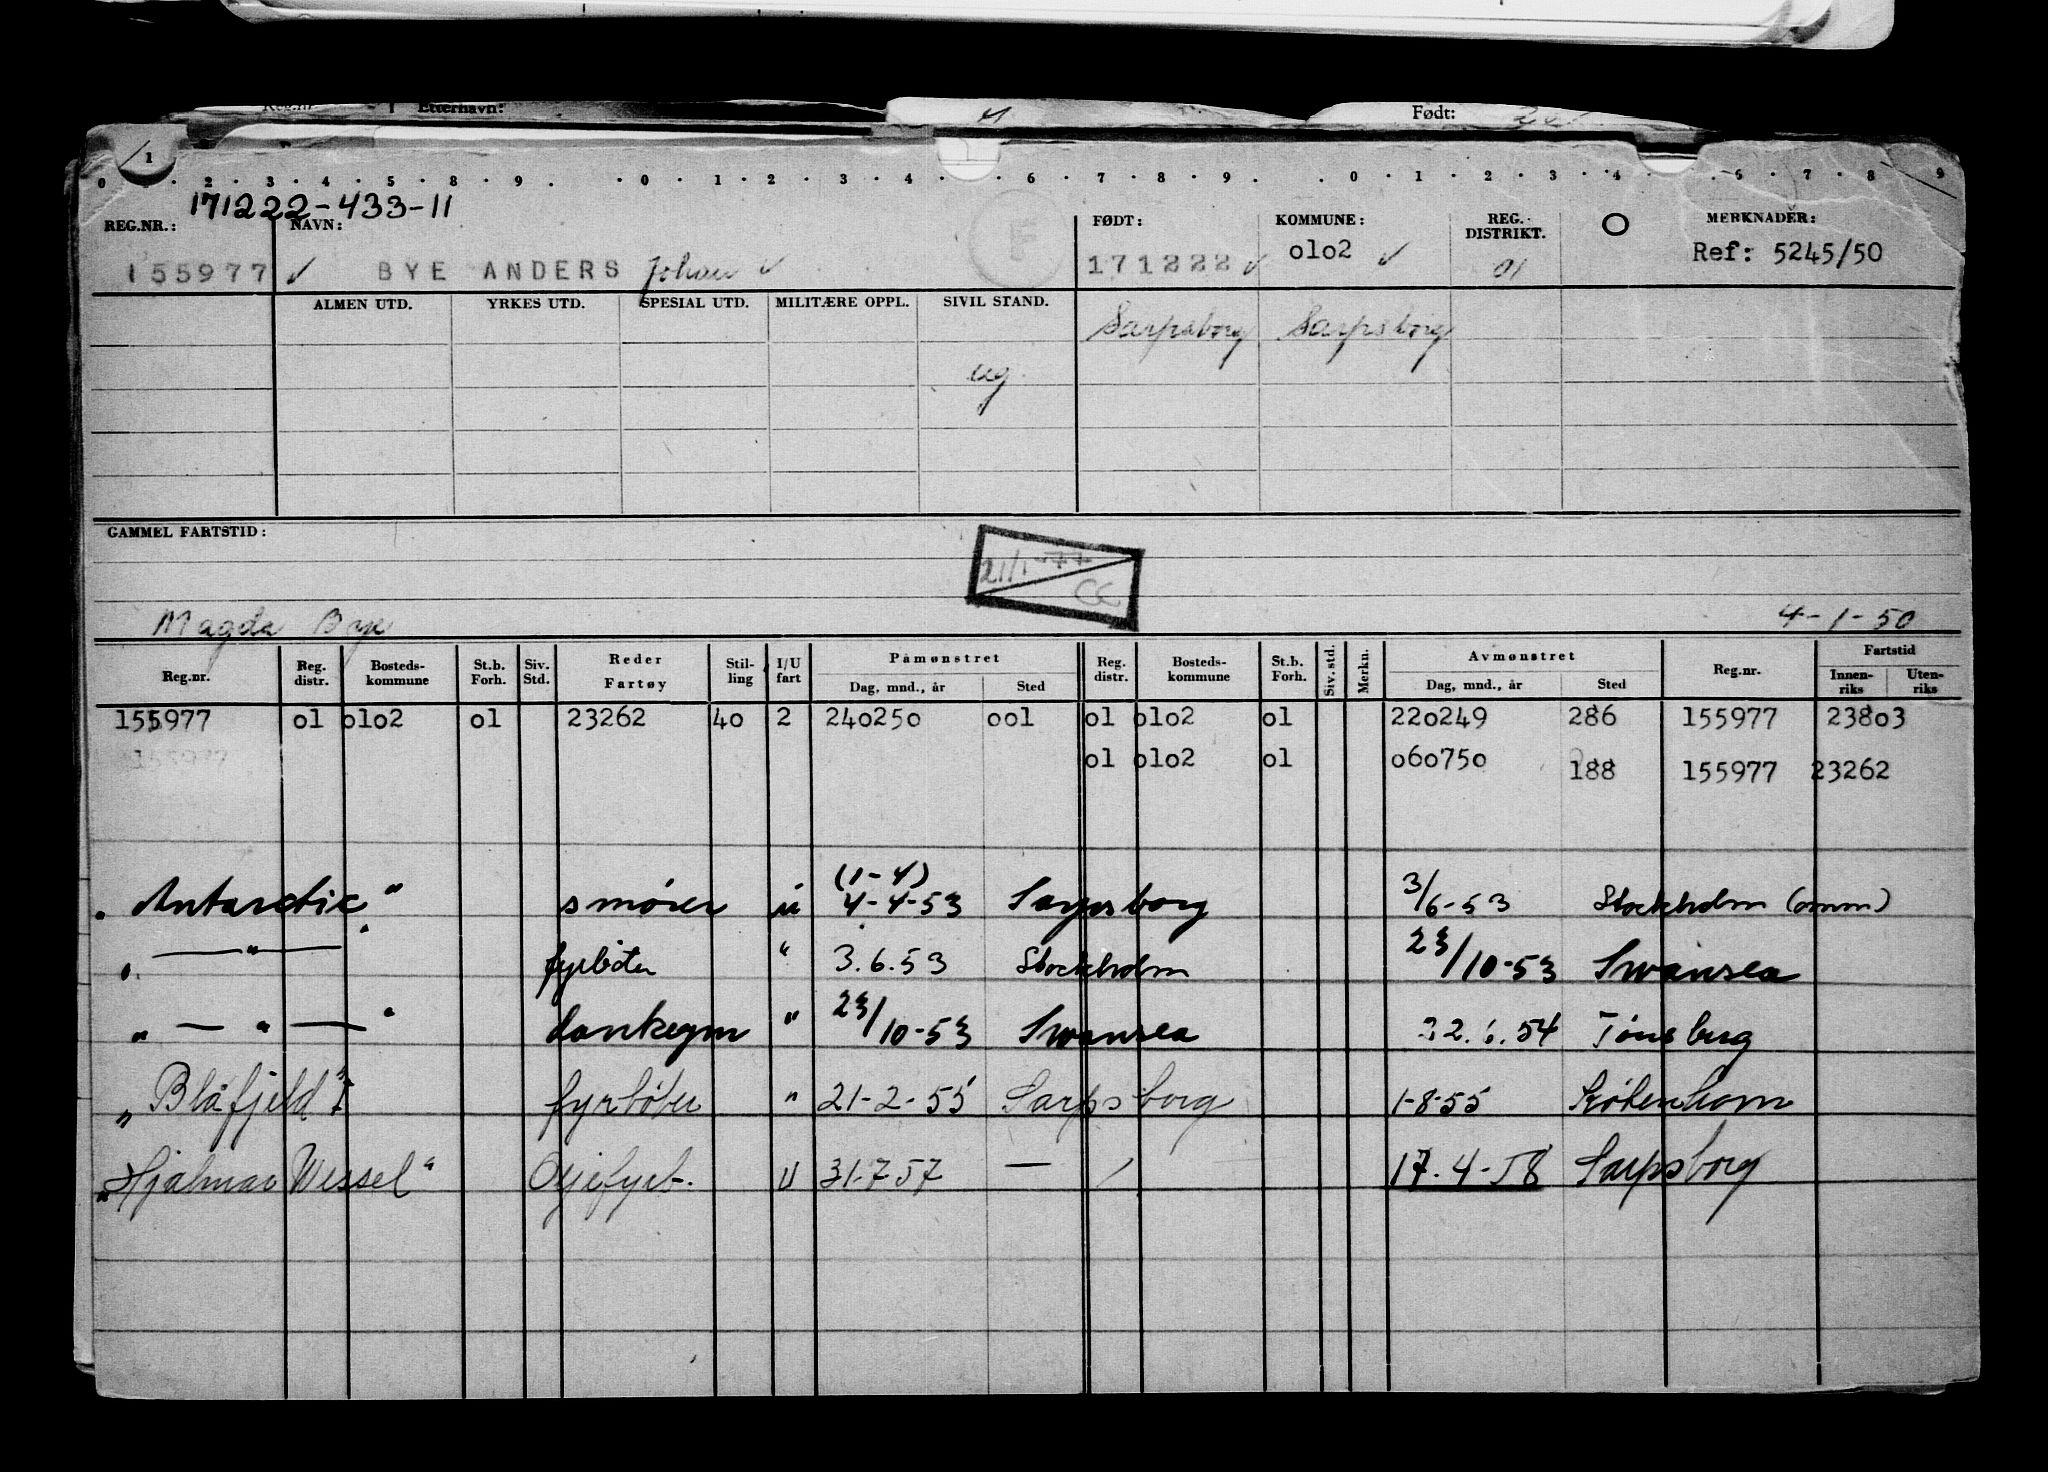 Reg.nr. Etternavn: Født:
1
0 2 3 4 5 8 9 0 1 2 3 4 6 7 8 9 0 1 2 3 4 5 6 7 8 9
171222-433-11
REG.NR.: NAVN: FØDT: KOMMUNE: REG. DISTRIKT. O MERKNADER:
155977 ✓ BYE ANDERS Johan ✓ F 171222 ✓ 0102 ✓ 01 Ref: 5245/50
ALMEN UTD. YRKES UTD. SPESIAL UTD. MILITÆRE OPPL. SIVIL STAND.
Sarpsborg Sarpsborg
ug.
GAMMEL FARTSTID:
21/1-77
CC
Magda Bye 4-1-50
Reg.nr. Reg. distr. Bosteds-kommune St.b. Forh. Siv. Std. Reder Fartøy Stil-ling I/U fart Påmønstret Dag, mnd., år Sted Reg. distr. Bosteds-kommune St.b. Forh. Siv. std. Merkn. Avmønstret Dag, mnd., år Sted Reg.nr. Fartstid Innen-riks Uten-riks
155977 01 0102 01 23262 40 2 240250 001 01 0102 01 220249 286 155977 23803
155977 01 0102 01 060750 188 155977 23262
(1-4)
"Antarctic" smører u 4-4-53 Sarpsborg 3/6-53 Stockholm (omm)
" — " — " fyrbøter " 3.6.53 Stockholm 23/10-53 Swansea
" — " — " donkeym " 23/10-53 Swansea 22.6.54 Tønsberg
"Blåfjeld I" fyrbøter " 21-2-55 Sarpsborg 1-8-55 København
"Hjalmar Wessel" Oljefyrb. U 31-7 57 — 17.4-58 Sarpsborg